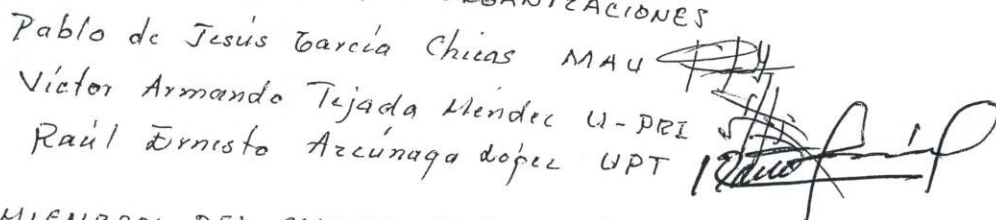 ORGANIZACIONES
Pablo de Jesús García Chicas MAU
Víctor Armando Tejada Méndez U-PRI
Raúl Ernesto Azcúnaga López UPT
MIEMBROS DEL